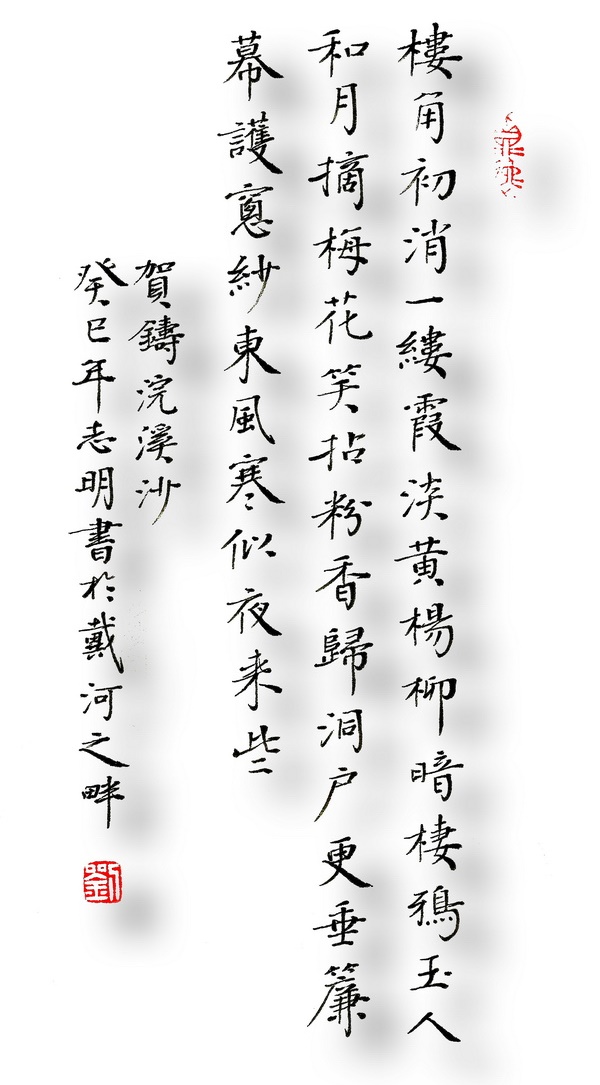 樓角初消一縷霞淡黄楊柳暗棲鴉玉人
和月摘梅花笑拈粉香歸洞户更垂簾
幕護窻紗東風寒似夜来些
賀鑄浣溪沙
癸巳年志明書於戴河之畔
劉